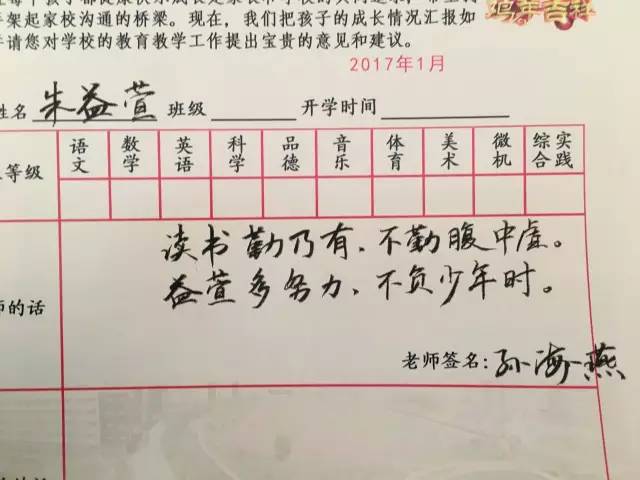 鸡年吉祥
架起家校沟通的桥梁。现在，我们把孩子的成长情况汇报如
请您对学校的教育教学工作提出宝贵的意见和建议。
2017年1月
姓名 朱益萱 班级 开学时间
等级 语文 数学 英语 科学 品德 音乐 体育 美术 微机 综合实践
读书勤乃有、不勤腹中虚。
益萱多努力、不负少年时。
师的话
老师签名：孙海燕